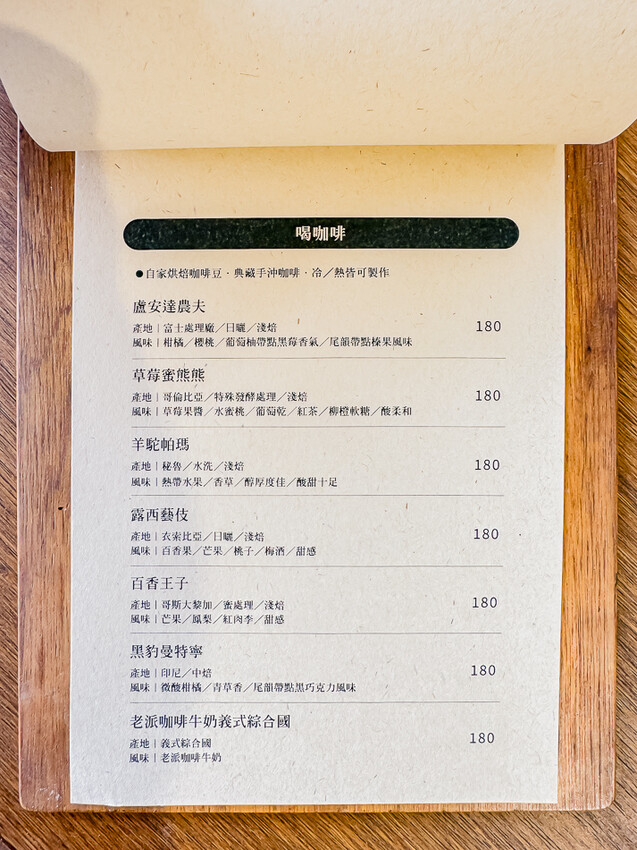 喝咖啡
●自家烘焙咖啡豆．典藏手沖咖啡．冷／熱皆可製作
盧安達農夫
產地｜富士處理廠／日曬／淺焙
風味｜柑橘／櫻桃／葡萄柚帶點黑莓香氣／尾韻帶點榛果風味
180
草莓蜜熊熊
產地｜哥倫比亞／特殊發酵處理／淺焙
風味｜草莓果醬／水蜜桃／葡萄乾／紅茶／柳橙軟糖／酸柔和
180
羊駝帕瑪
產地｜秘魯／水洗／淺焙
風味｜熱帶水果／香草／醇厚度佳／酸甜十足
180
露西藝伎
產地｜衣索比亞／日曬／淺焙
風味｜百香果／芒果／桃子／梅酒／甜感
180
百香王子
產地｜哥斯大黎加／蜜處理／淺焙
風味｜芒果／鳳梨／紅肉李／甜感
180
黑豹曼特寧
產地｜印尼／中焙
風味｜微酸柑橘／青草香／尾韻帶點黑巧克力風味
180
老派咖啡牛奶義式綜合國
產地｜義式綜合國
風味｜老派咖啡牛奶
180